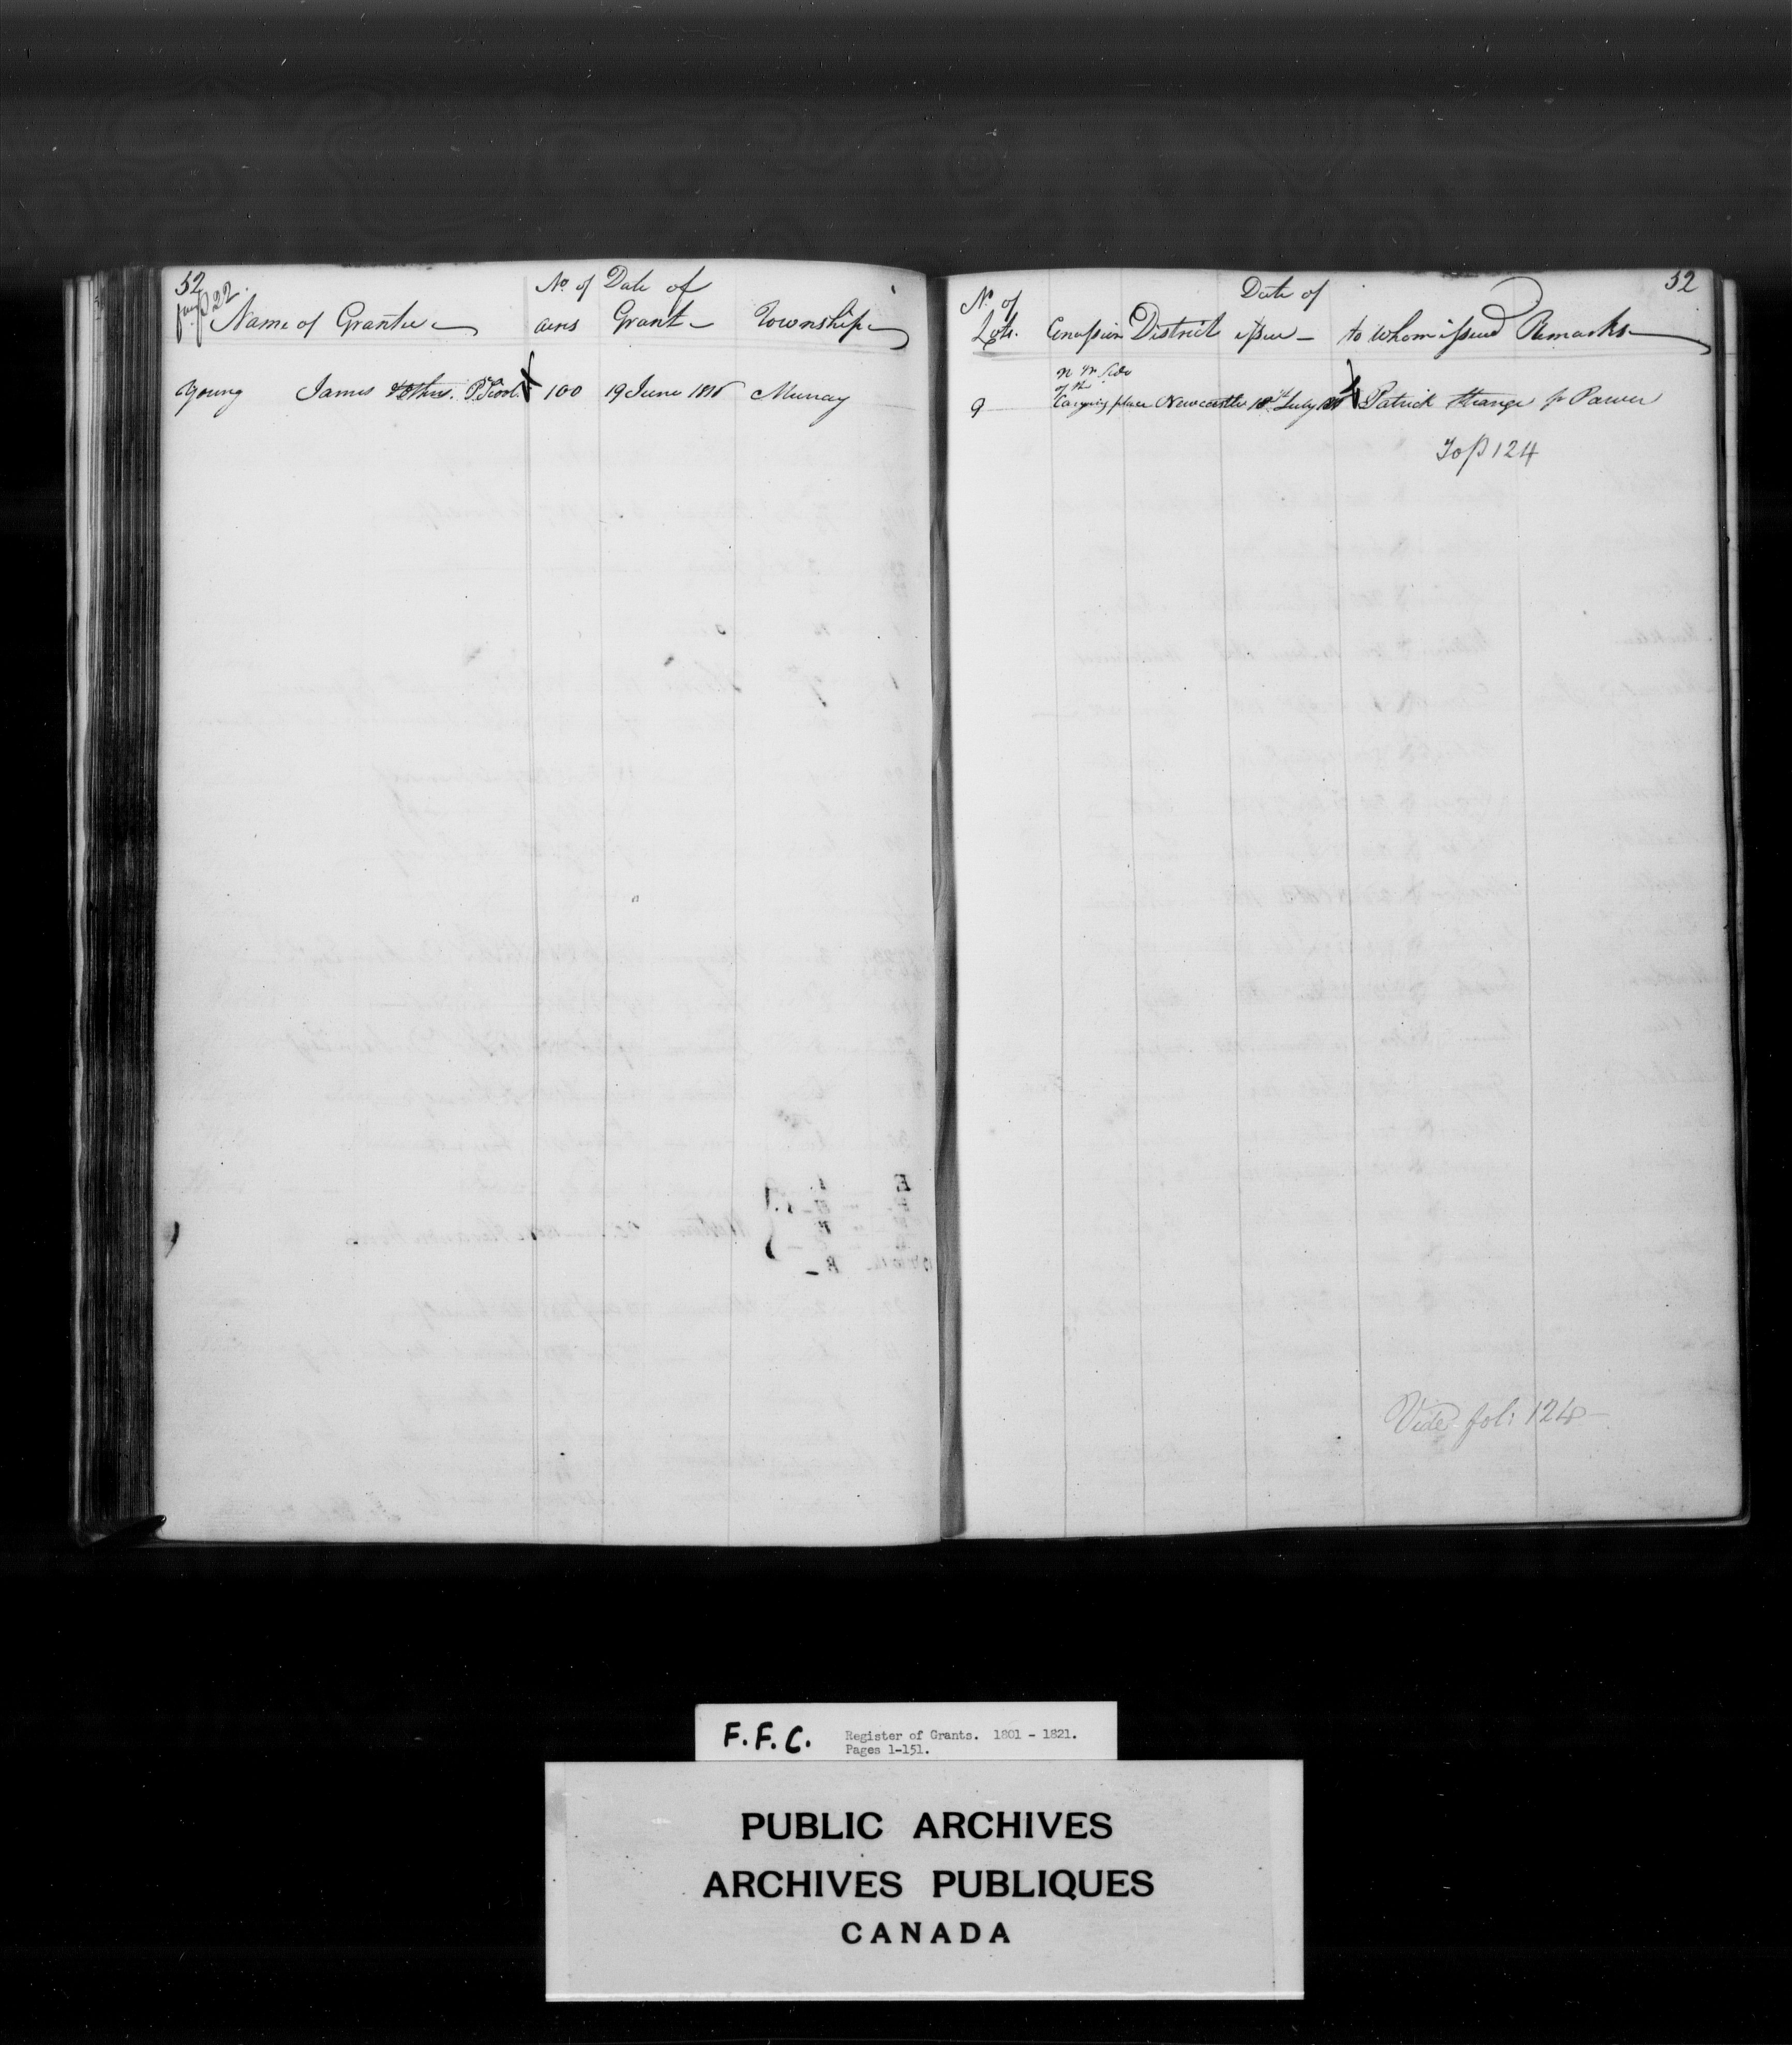 52
p 22.
No. of Date of
Name of Grantee acres Grant Township
Young James & others. 100 19 June 1816 Murray
52
No. of Date of
Lots. Concession District issue to Whom issued Remarks
N W Side
of the
9 Carrying place Newcastle 18th July Patrick Strange pr Power
To p 124
Vide fol: 124
F.F.C. Register of Grants. 1801 - 1821.
Pages 1-151.
PUBLIC ARCHIVES
ARCHIVES PUBLIQUES
CANADA